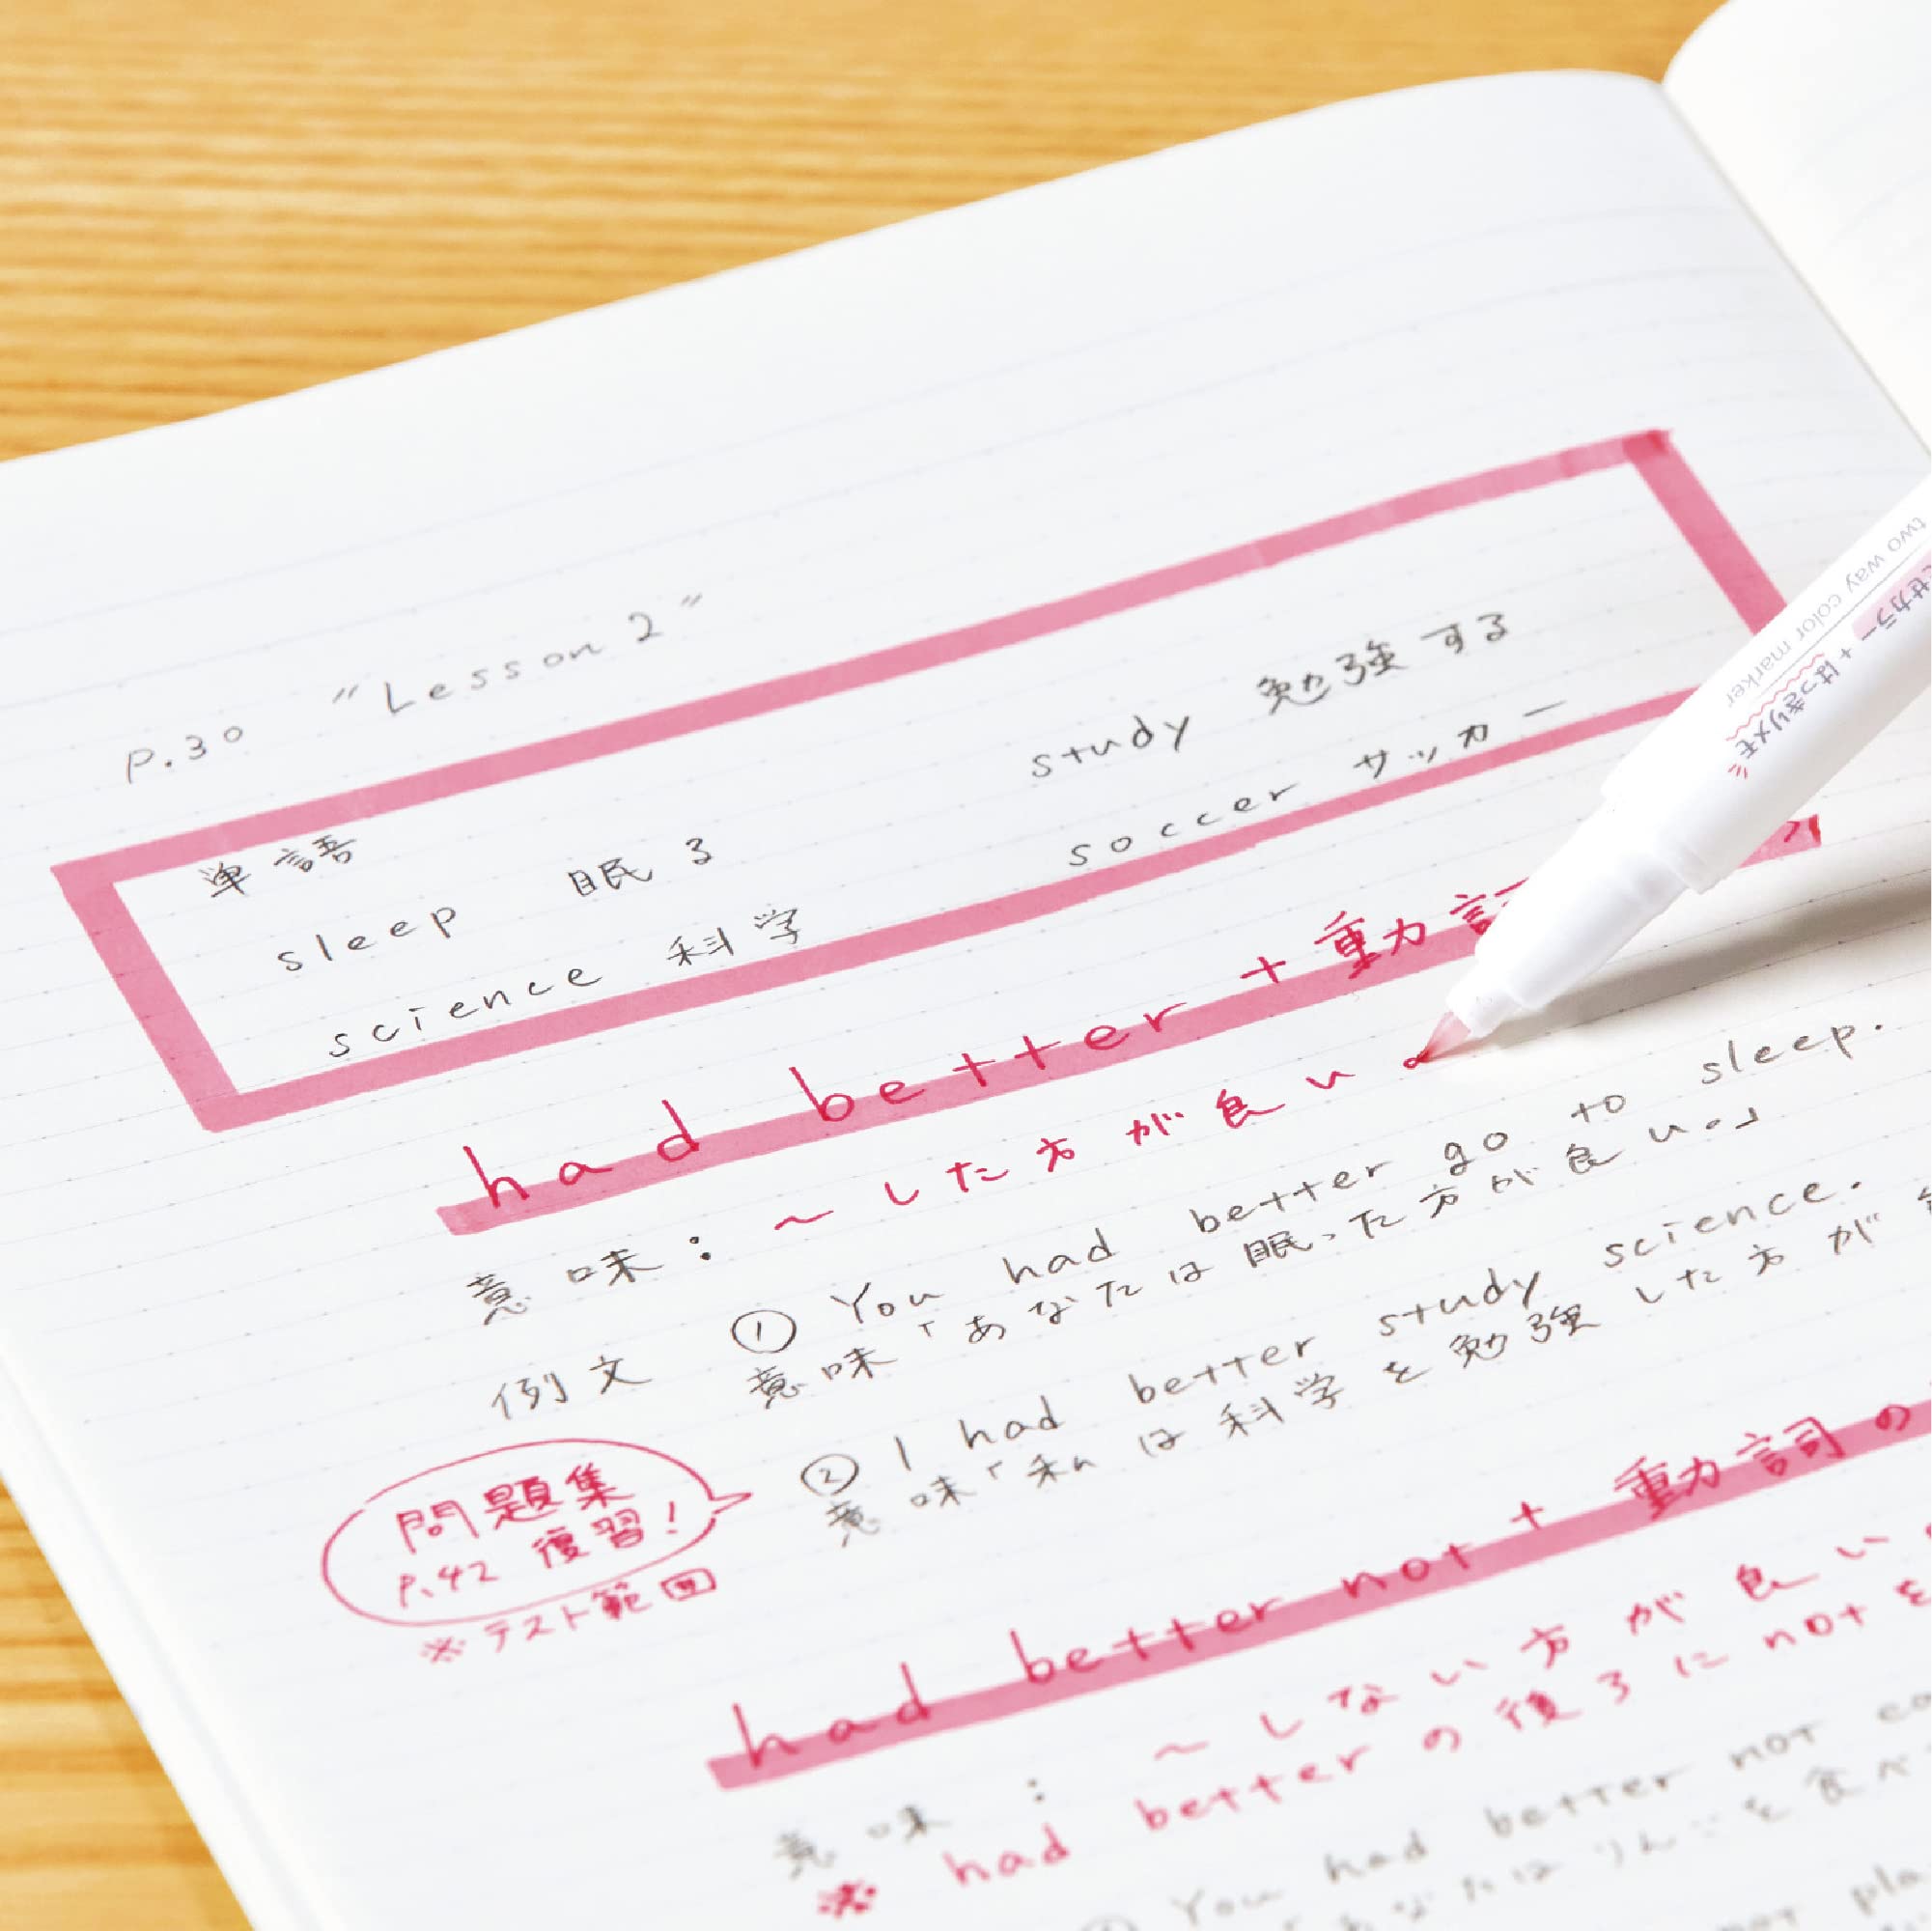 P.30 "Lesson 2"
単語
sleep 眠る study 勉強する
science 科学 soccer サッカー
had better + 動詞
意味：～した方が良い
例文 ① You had better go to sleep.
意味「あなたは眠った方が良い。」
② I had better study science.
意味「私は科学を勉強した方が
問題集
P.42 復習！
※テスト範囲
had better not + 動詞の
意味：～しない方が良い
※ had better の後ろに not を
You had better not
あなたはりんごを食べ
two way color marker
せカラー + はっきりメモ